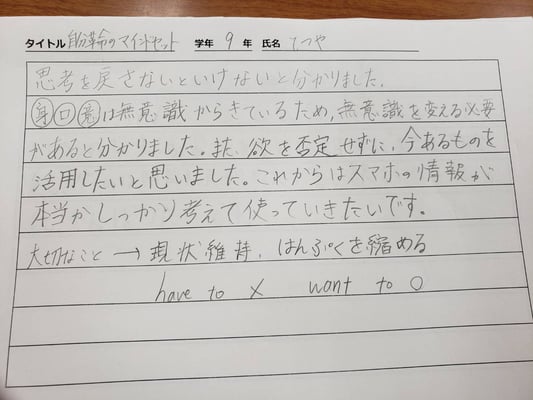 タイトル 自分革命のマインドセット 学年 9 年 氏名 てつや
思考を戻さないといけないと分かりました。
身口意は無意識からきているため、無意識を変える必要
があると分かりました。また、欲を否定せずに、今あるものを
活用したいと思いました。これからはスマホの情報が
本当かしっかり考えて使っていきたいです。
大切なこと → 現状維持、はんぷくを縮める
have to × want to ○